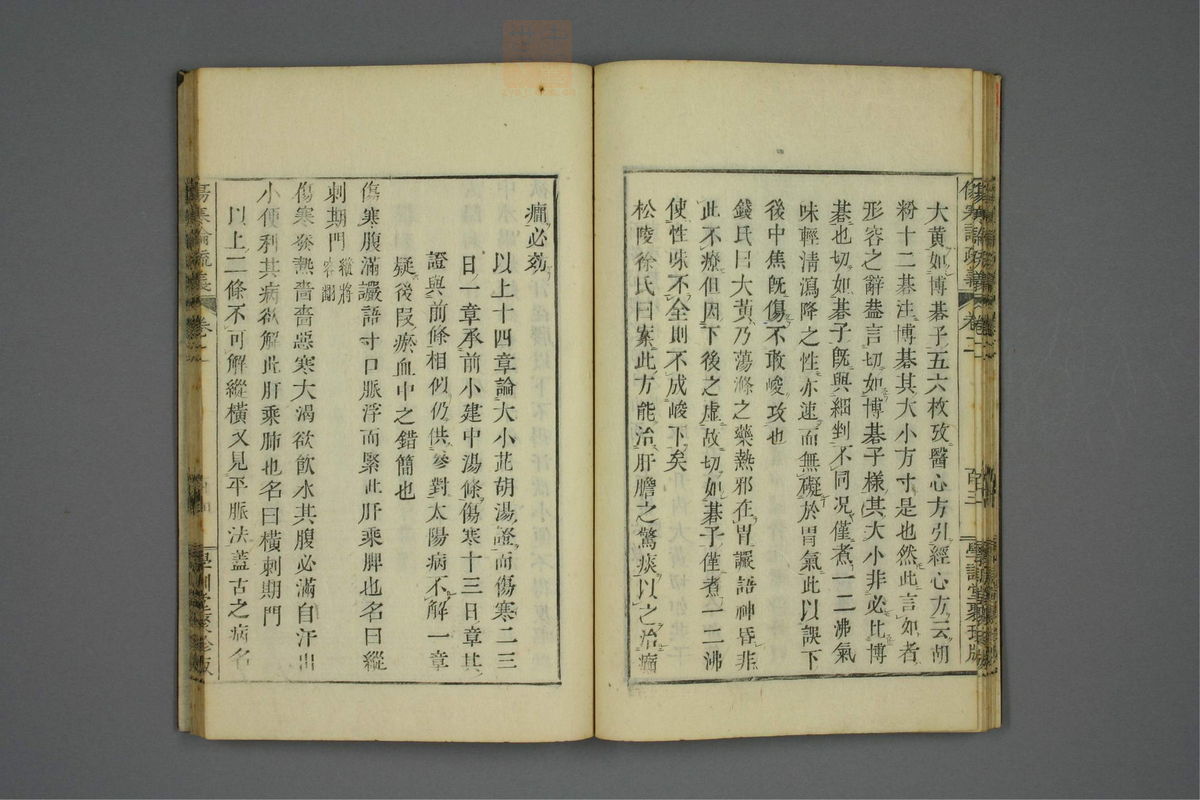 大黃如博棊子五六枚攷醫心方引經心方云胡
粉十二棊注博棊其大小方寸是也然此言如者
形容之辭盖言切如博棊子樣其大小非必比博
棊也切如棊子旣與細剉不同况僅煮一二沸氣
味輕清瀉降之性亦速而無礙於胃氣此以誤下
後中焦旣傷不敢峻攻也
錢氏曰大黃乃蕩滌之藥熱邪在胃讝語神昏非
此不療但因下後之虛故切如棊子僅煮一二沸
使性味不全則不成峻下矣
松陵徐氏曰案此方能治肝膽之驚痰以之治癎
癲必効
以上十四章論大小茈胡湯證而傷寒二三
日一章承前小建中湯條傷寒十三日章其
證與前條相似仍供參對太陽病不解一章
疑後叚瘀血中之錯簡也
傷寒腹滿讝語寸口脈浮而緊此肝乘脾也名曰縱
刺期門
傷寒發熱嗇嗇惡寒大渴欲飮水其腹必滿自汗出
小便利其病欲解此肝乘肺也名曰橫刺期門
以上二條不可解縱橫又見平脈法蓋古之病名
傷寒論疏義
卷二